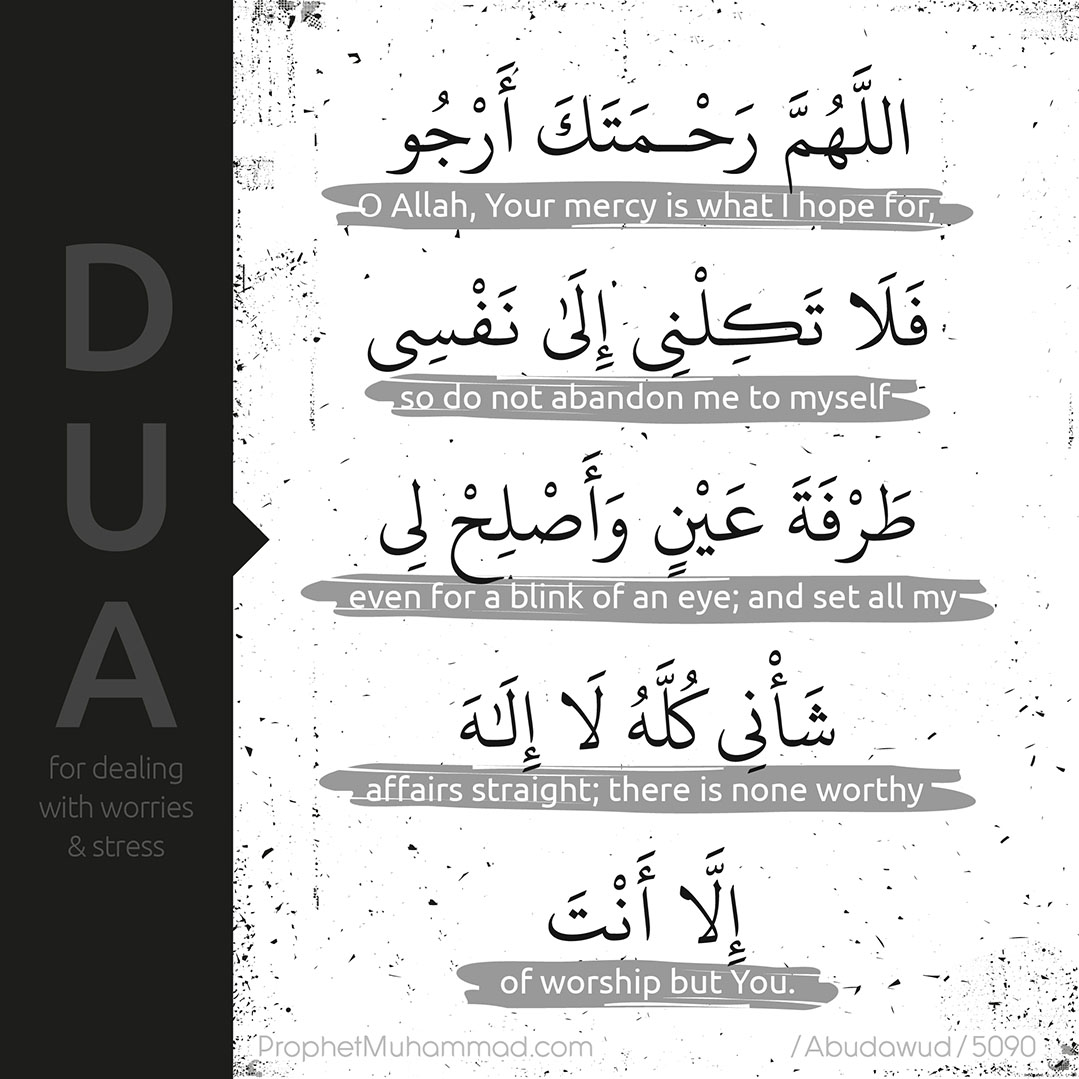 DUA
for dealing
with worries
& stress
اللَّهُمَّ رَحْـمَتَكَ أَرْجُو
O Allah, Your mercy is what I hope for,
فَلَا تَكِلْنِي إِلَىٰ نَفْسِي
so do not abandon me to myself
طَرْفَةَ عَيْنٍ وَأَصْلِحْ لِي
even for a blink of an eye; and set all my
شَأْنِي كُلَّهُ لَا إِلَـٰهَ
affairs straight; there is none worthy
إِلَّا أَنْتَ
of worship but You.
ProphetMuhammad.com
/Abudawud/5090